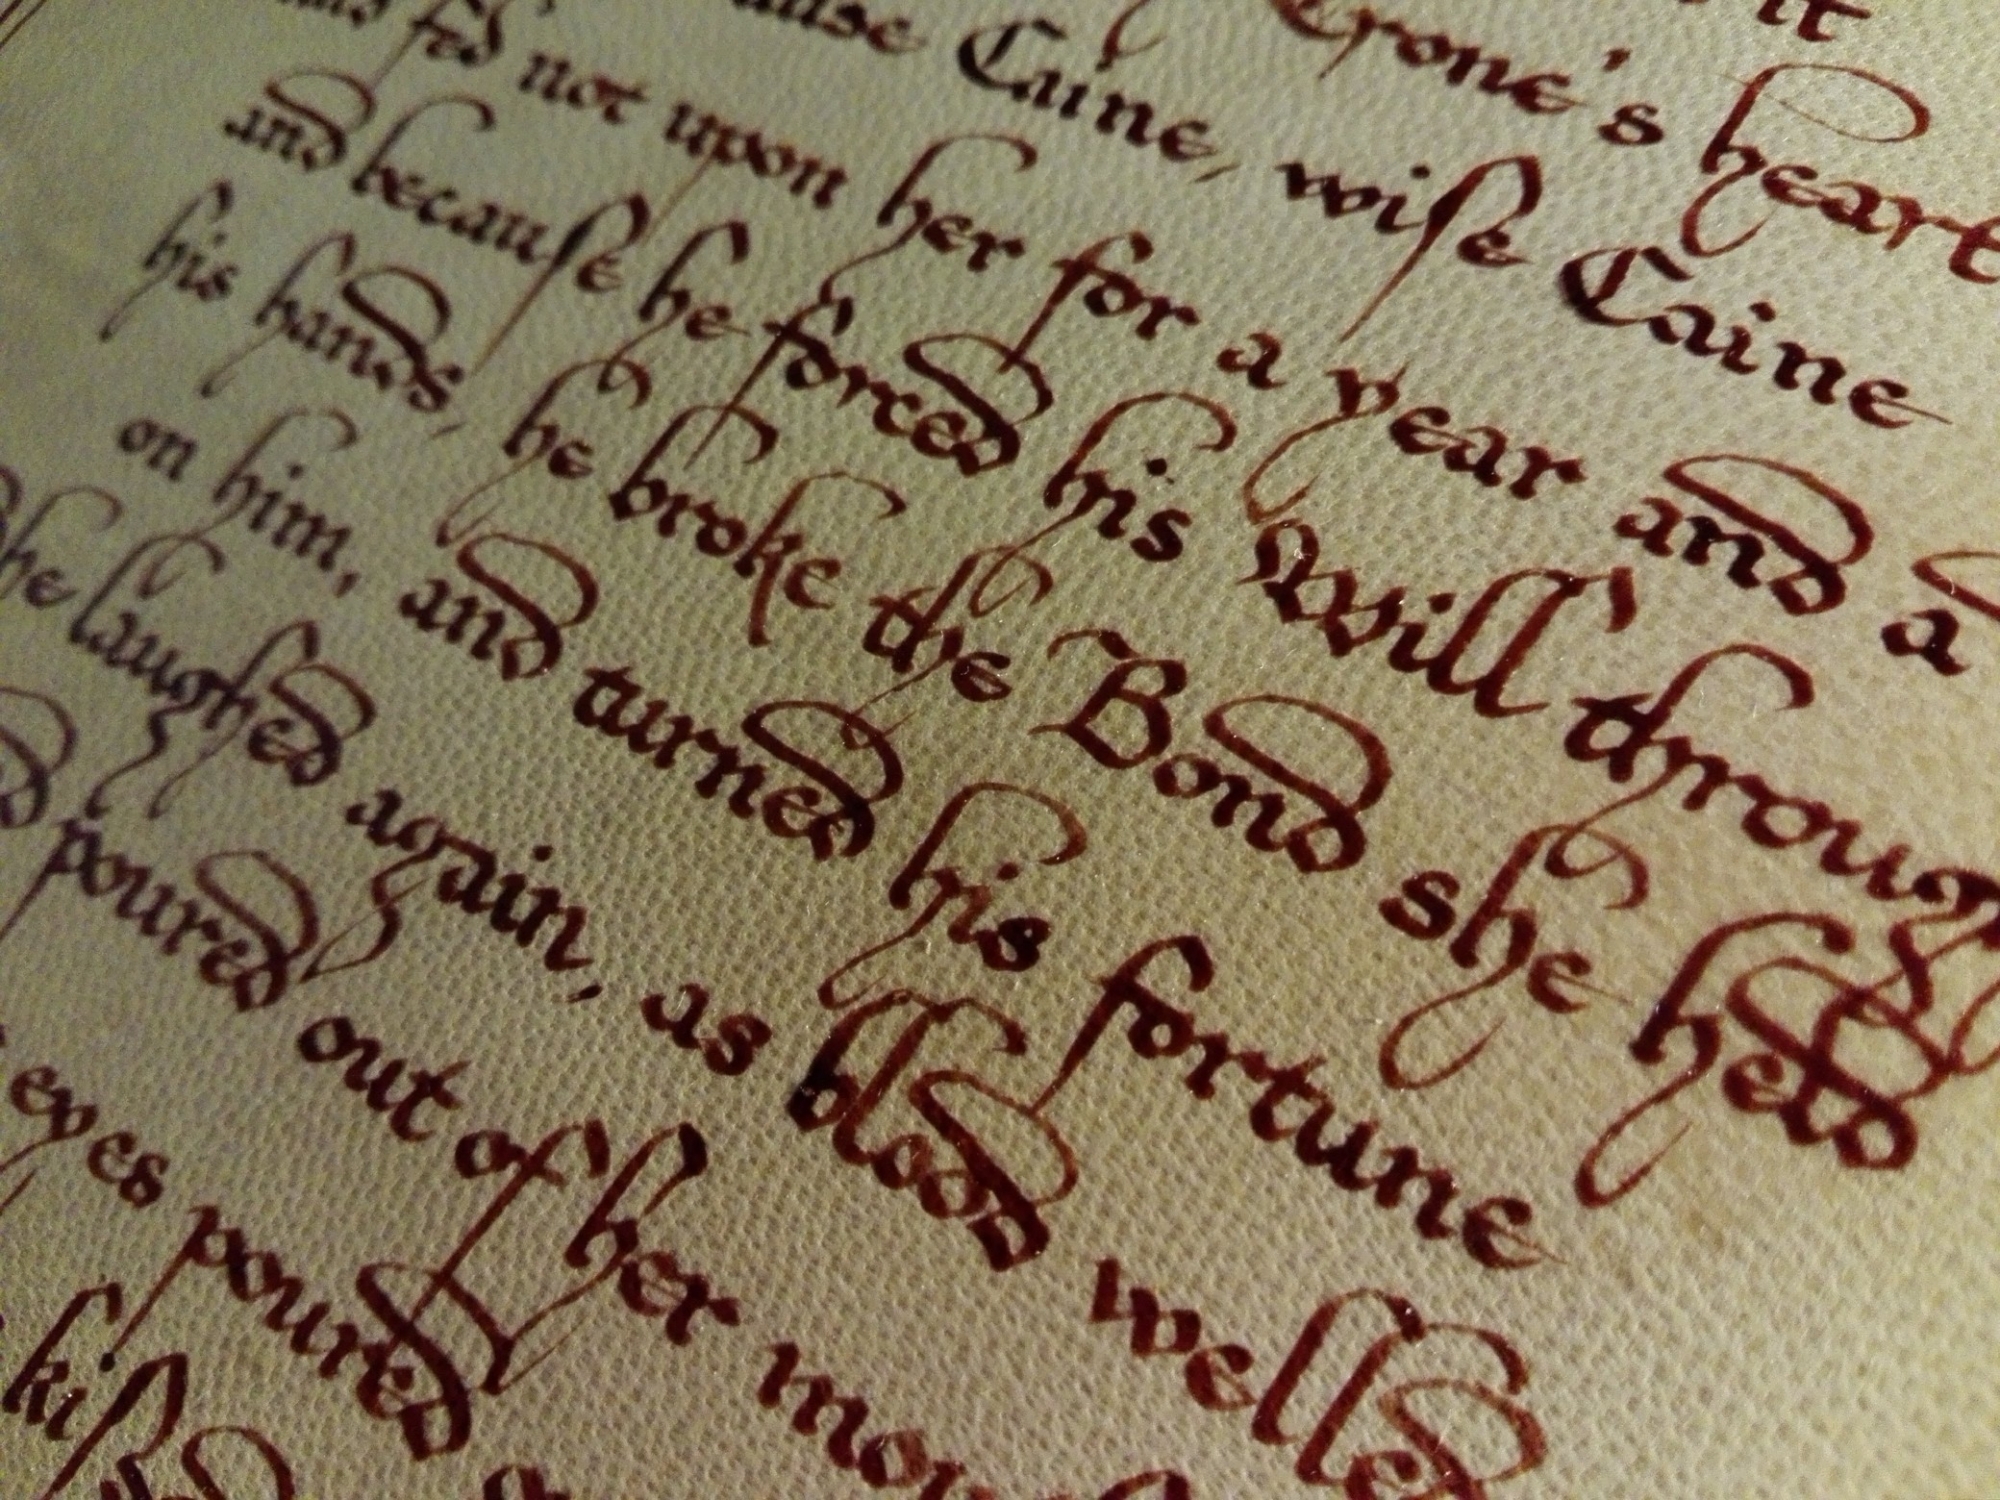 it
Crone's heart
Caine, wiſe Caine
fed not upon her for a year and a
and becauſe he forced his Will throug
his hands, he broke the Bond she held
on him, and turned his fortune
he laughed again, as blood welled
poured out of her mou
eyes poured